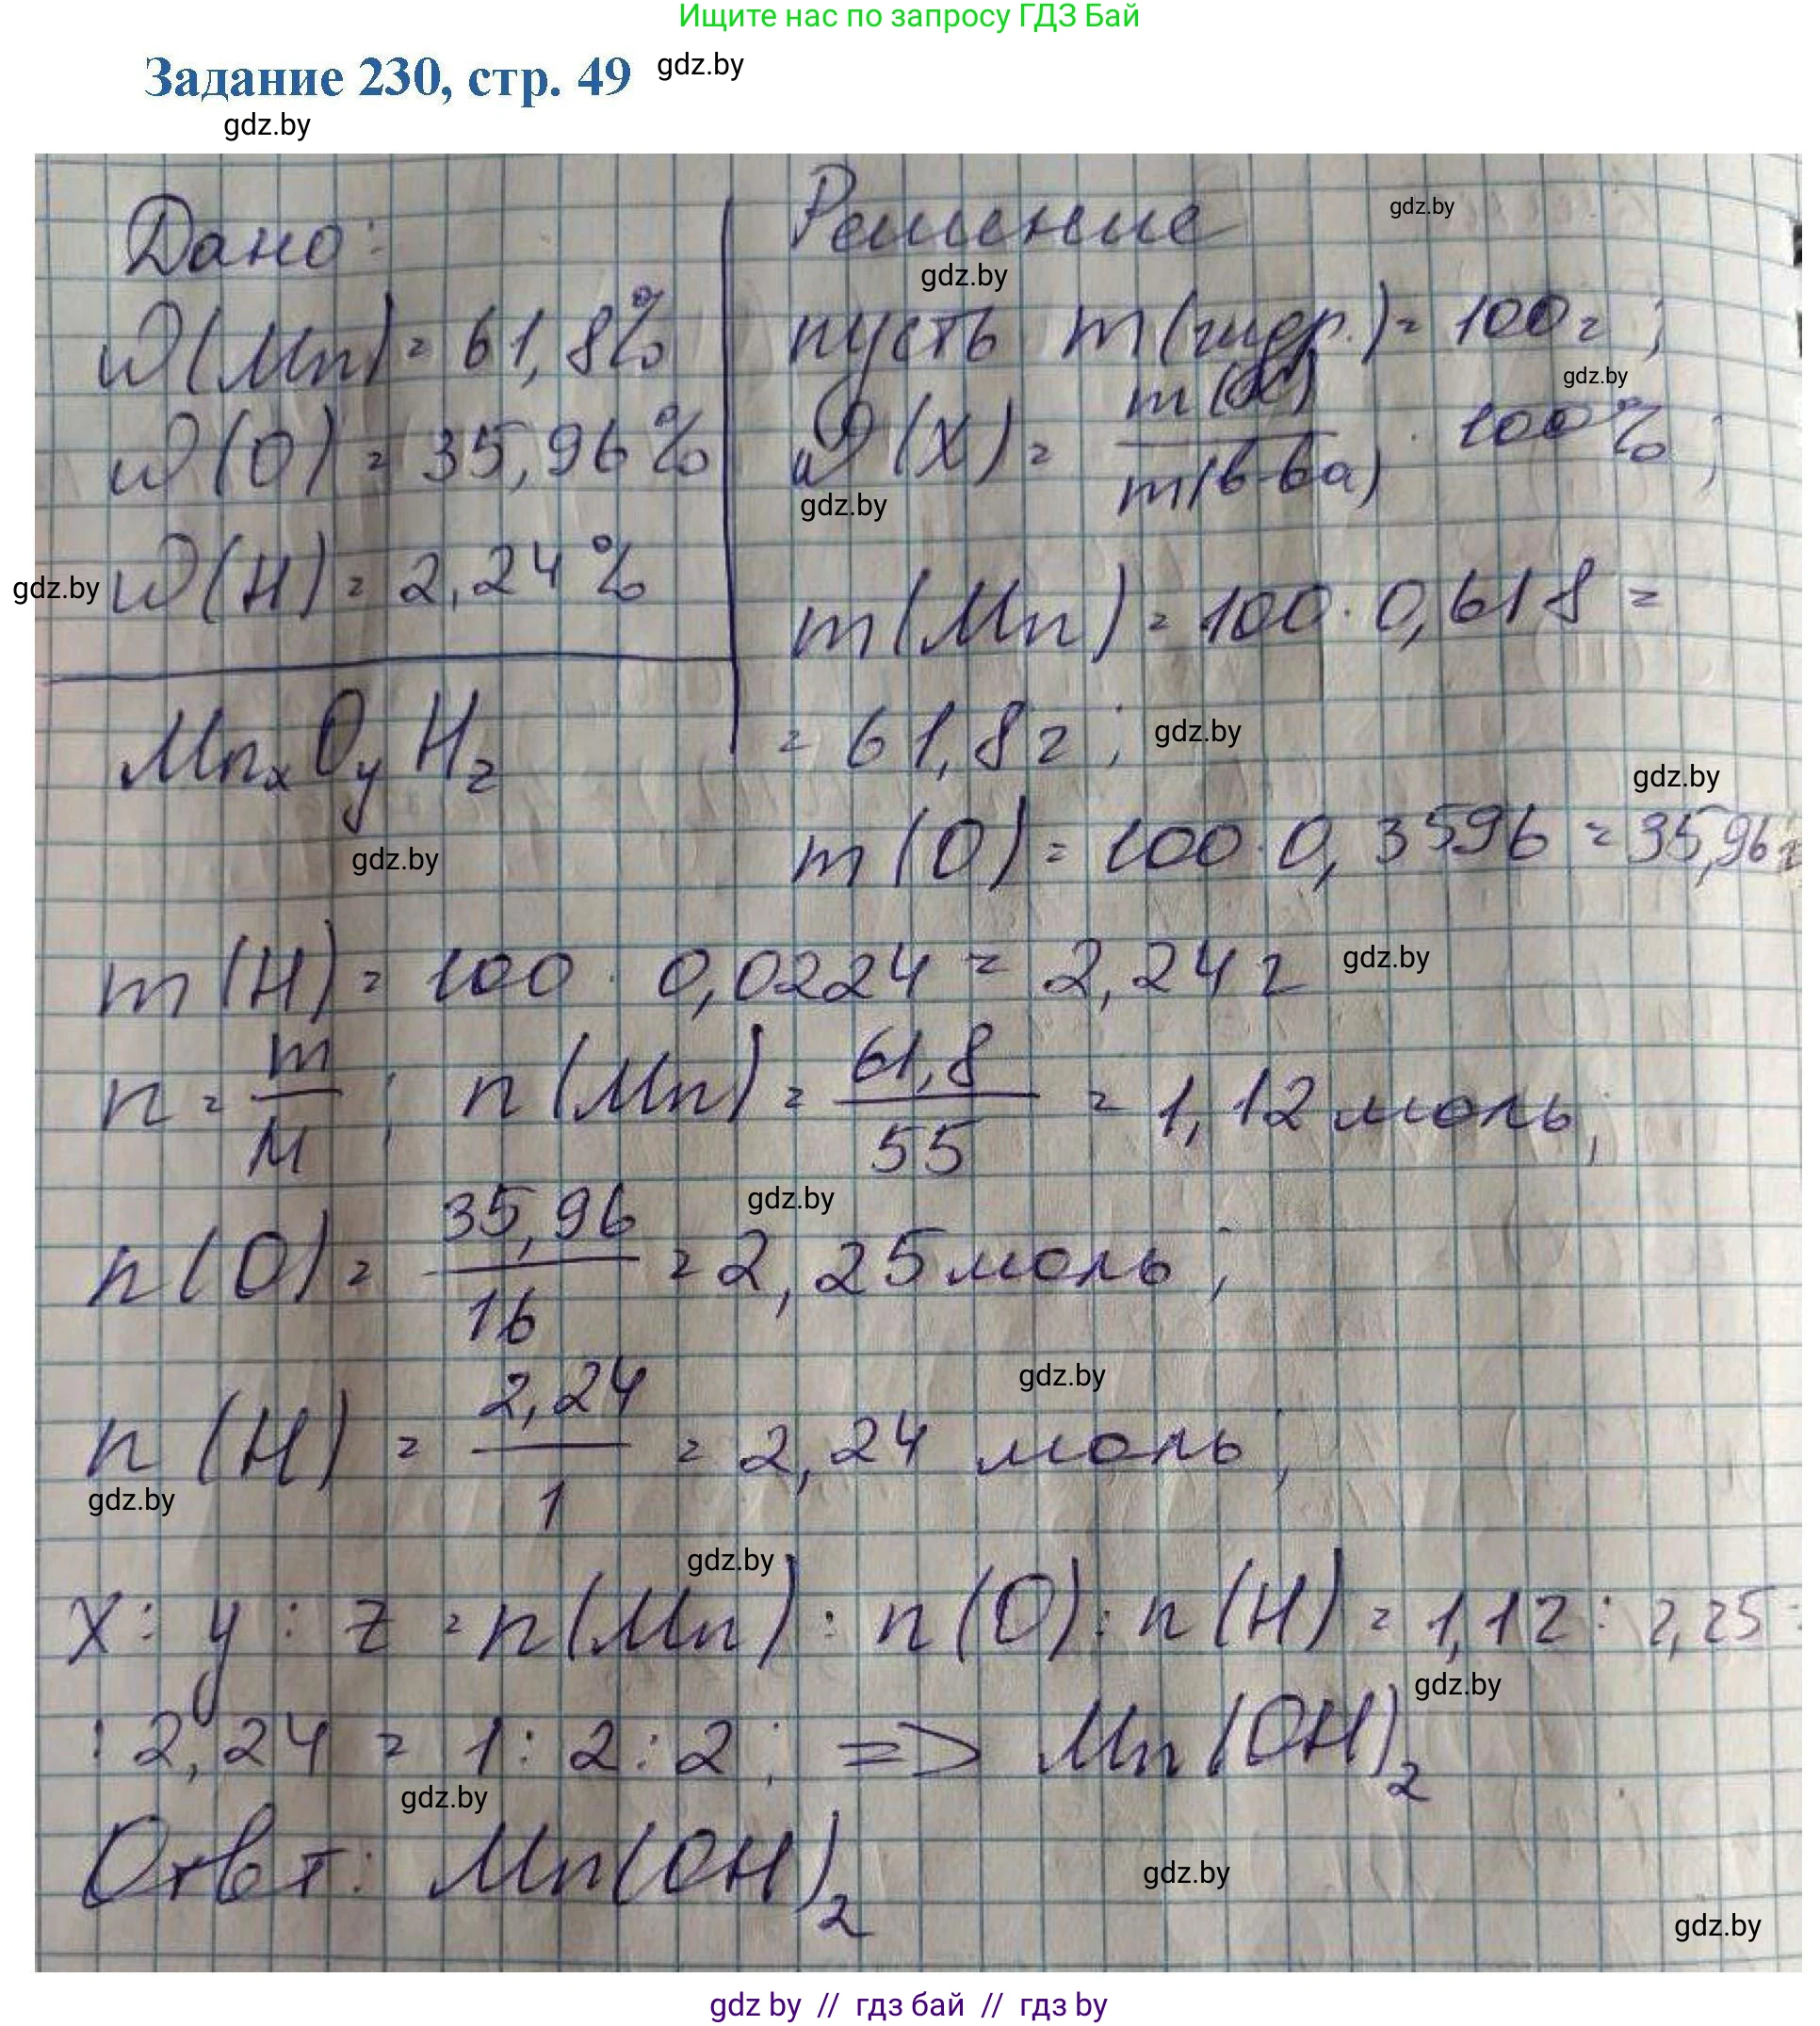 Ищите нас по запросу ГДЗ Бай
Задание 230, стр. 49
gdz.by
gdz.by
Дано:
W(Mn) = 61,8%
W(O) = 35,96%
W(H) = 2,24%
gdz.by
MnxOyHz
gdz.by
Решение
gdz.by
gdz.by
пусть m(гидр.) = 100г;
gdz.by
W(X) = m(X)/m(в-ва) · 100%;
gdz.by
m(Mn) = 100 · 0,618 =
= 61,8г;
gdz.by
gdz.by
m(O) = 100 · 0,3596 = 35,96г
m(H) = 100 · 0,0224 = 2,24г
gdz.by
n = m/M; n(Mn) = 61,8/55 = 1,12 моль;
gdz.by
n(O) = 35,96/16 = 2,25 моль;
gdz.by
n(H) = 2,24/1 = 2,24 моль;
gdz.by
gdz.by
X : y : z = n(Mn) : n(O) : n(H) = 1,12 : 2,25 :
gdz.by
: 2,24 = 1 : 2 : 2; => Mn(OH)2
gdz.by
Ответ: Mn(OH)2
gdz.by
gdz.by
gdz by // гдз бай // гдз by